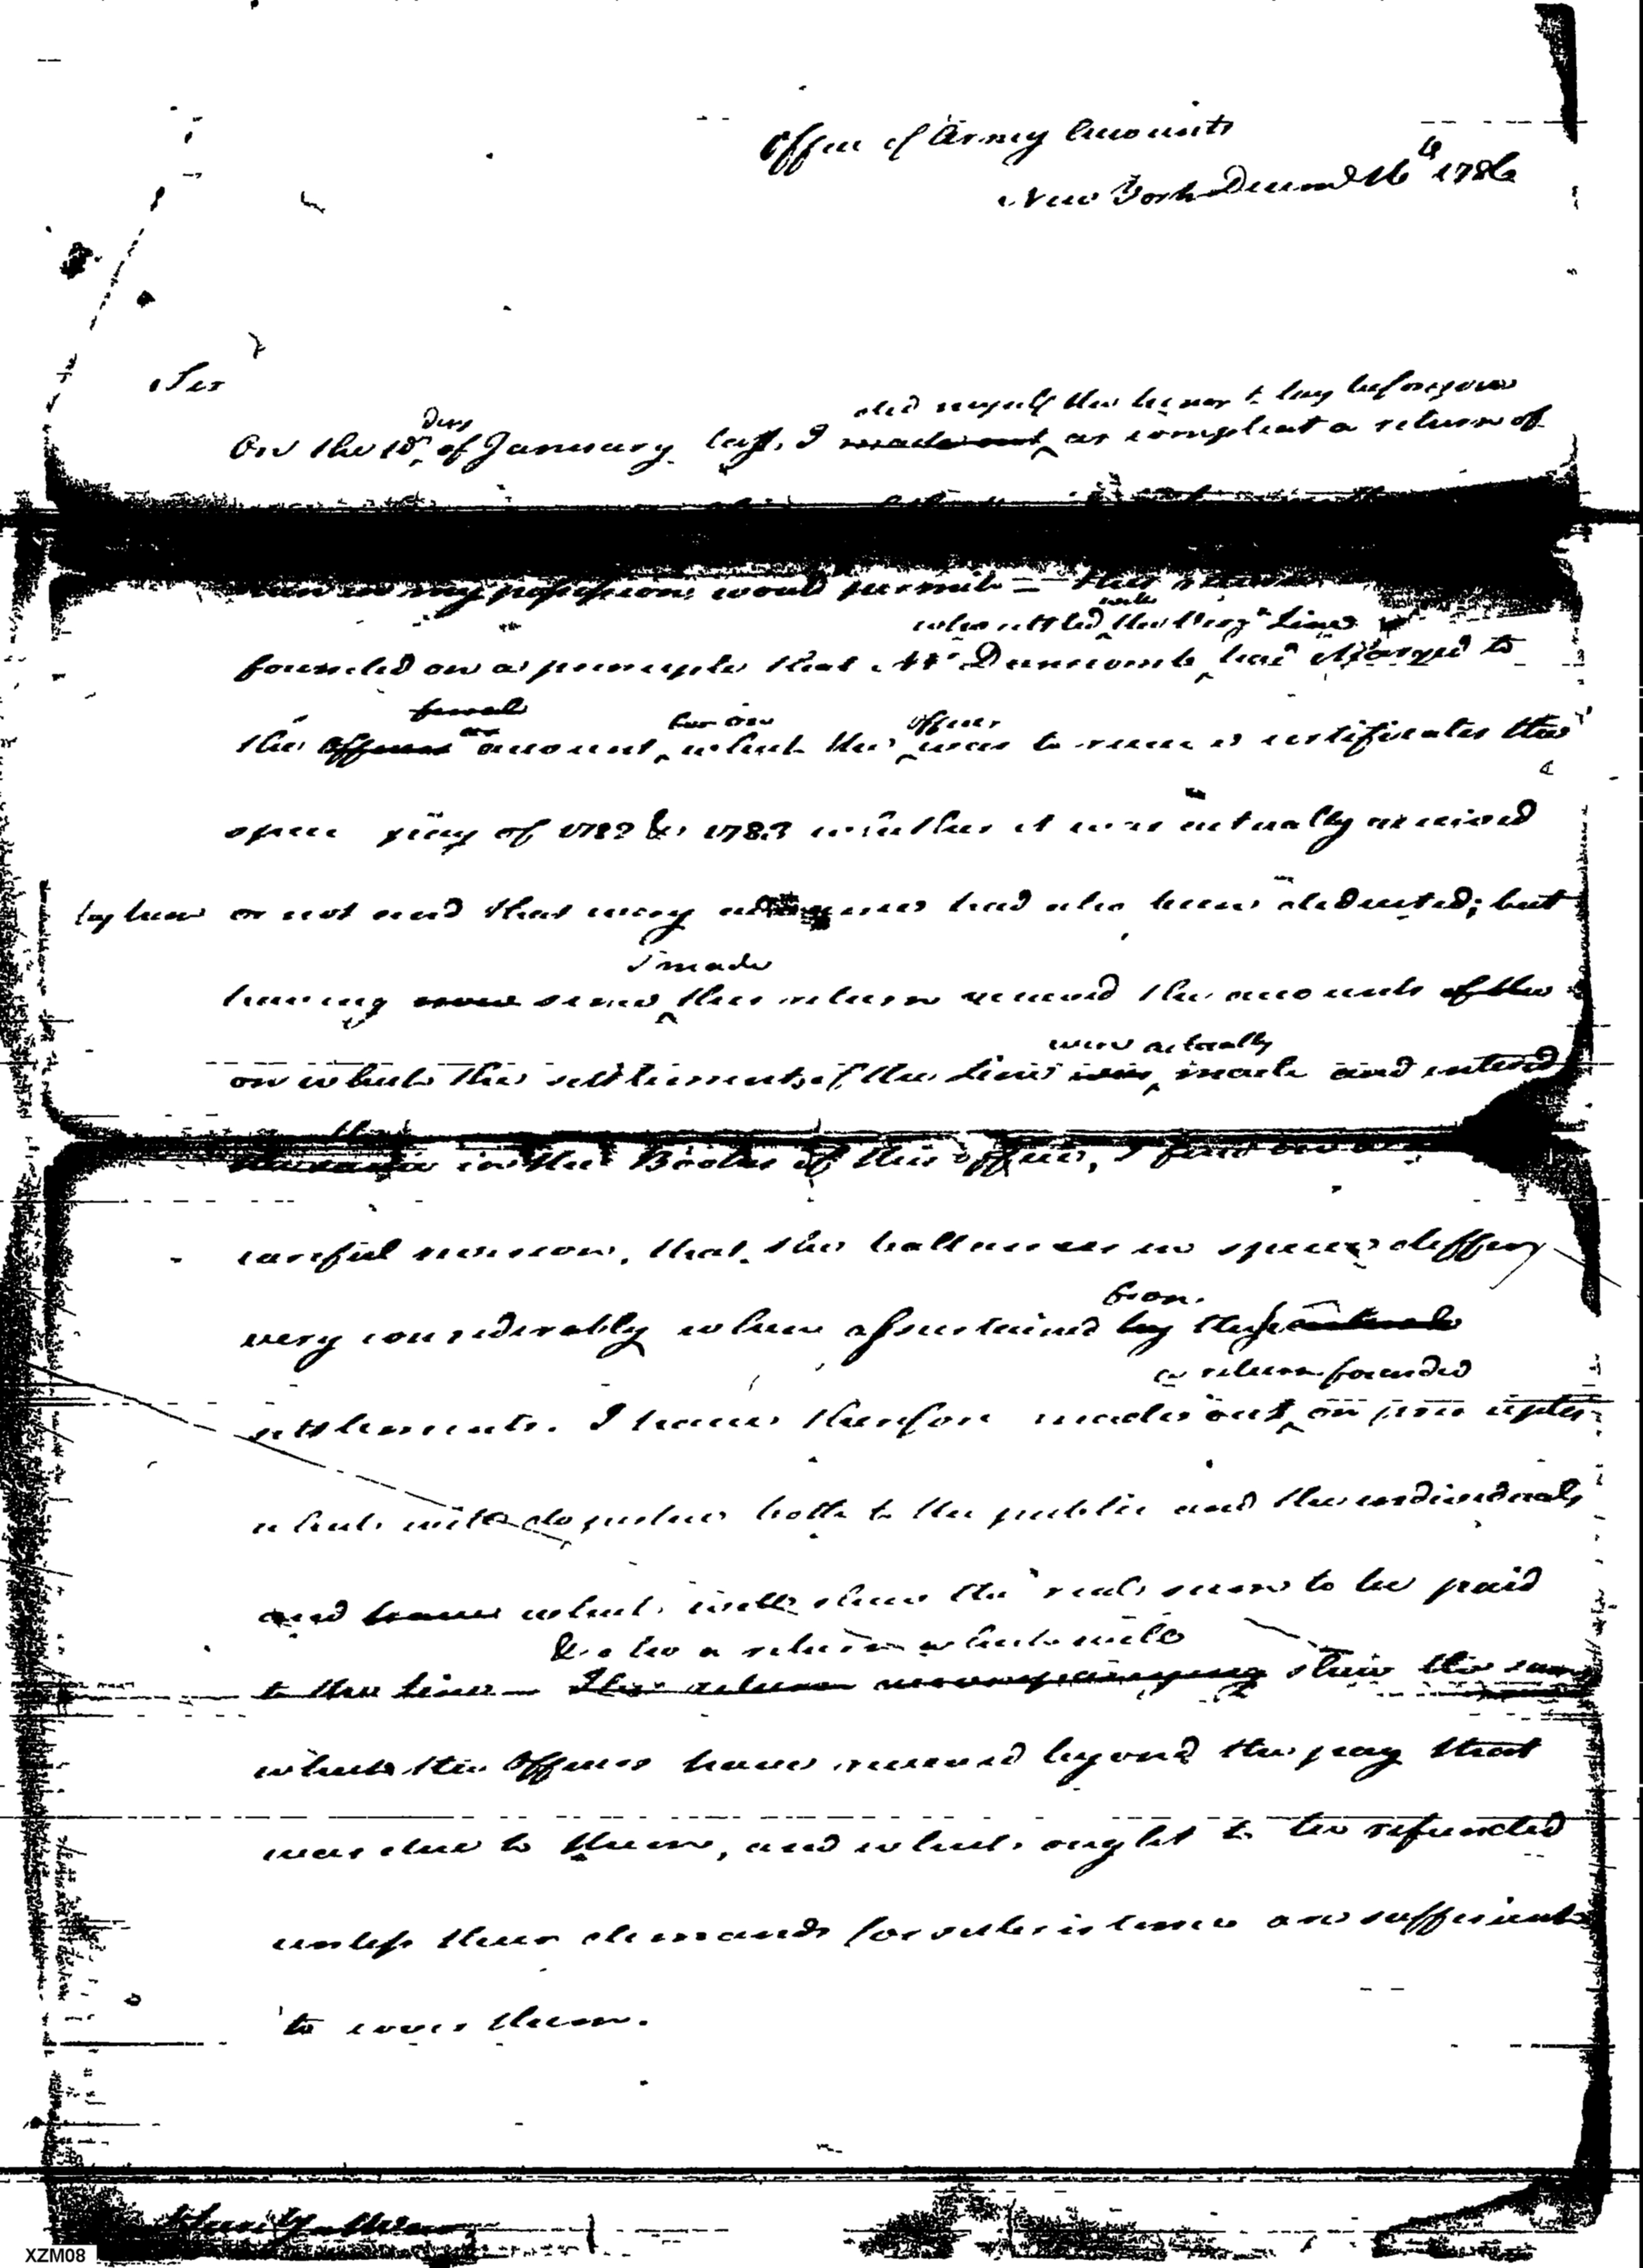 Office of Army Accounts
New York Decemr 16th 1786
Sir
did myself the honor to lay before you
On the 18th day of January last, I made out as compleat a return of
in my possession would permit = This return
who settled with the Virga Line
founded on a principle that Mr Dunscomb had charged to
the Officers amount, which the officer was to receive certificates the
specie pay of 1782 & 1783 whether it was actually received
by him or not and that every had also been deducted; but
I made
having since this return received the accounts of the
were actually
on which the settlements of the Line was made and entered
them in the Books of this office, I find on a
careful revision, that the ballances in specie differ
from
very considerably when assertained by these
a return founded
settlements. I have therefore made out on principles
which will do justice both to the public and the individuals
and have which will shew the real sum to be paid
& also a return which will
to the Line - The return accompanying shew the sums
which the Officers have received beyond the pay that
was due to them, and which ought to be refunded
unless their demands for subsistence are sufficient
to cover them.
XZM08